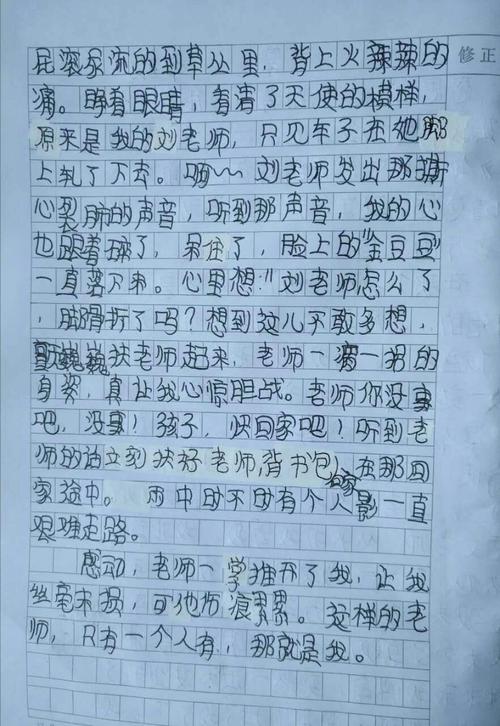 修正
屁滚尿流的到草丛里，背上火辣辣的
痛。睁着眼睛，看清了天使的模样，
原来是我的刘老师，只见车子在她脚
上轧了下去。啊~~刘老师发出那撕
心裂肺的声音，听到那声音，我的心
也跟着碎了，呆住了，脸上的“金豆豆”
一直落下来。心里想！刘老师怎么了
，骨折了吗？想到这儿不敢多想，
巍巍扶老师起来，老师一瘸一拐的
身姿，真让我心惊胆战。老师你没事
吧，没事！孩子，快回家吧！听到老
师的话立刻扶好老师，背书包，在那回
家途中。雨中时不时有个人影一直
艰难走路。
感动，老师一掌推开了我，让我
丝毫未损，可他伤痕累累。这样的老
师，只有一个人有，那就是我。